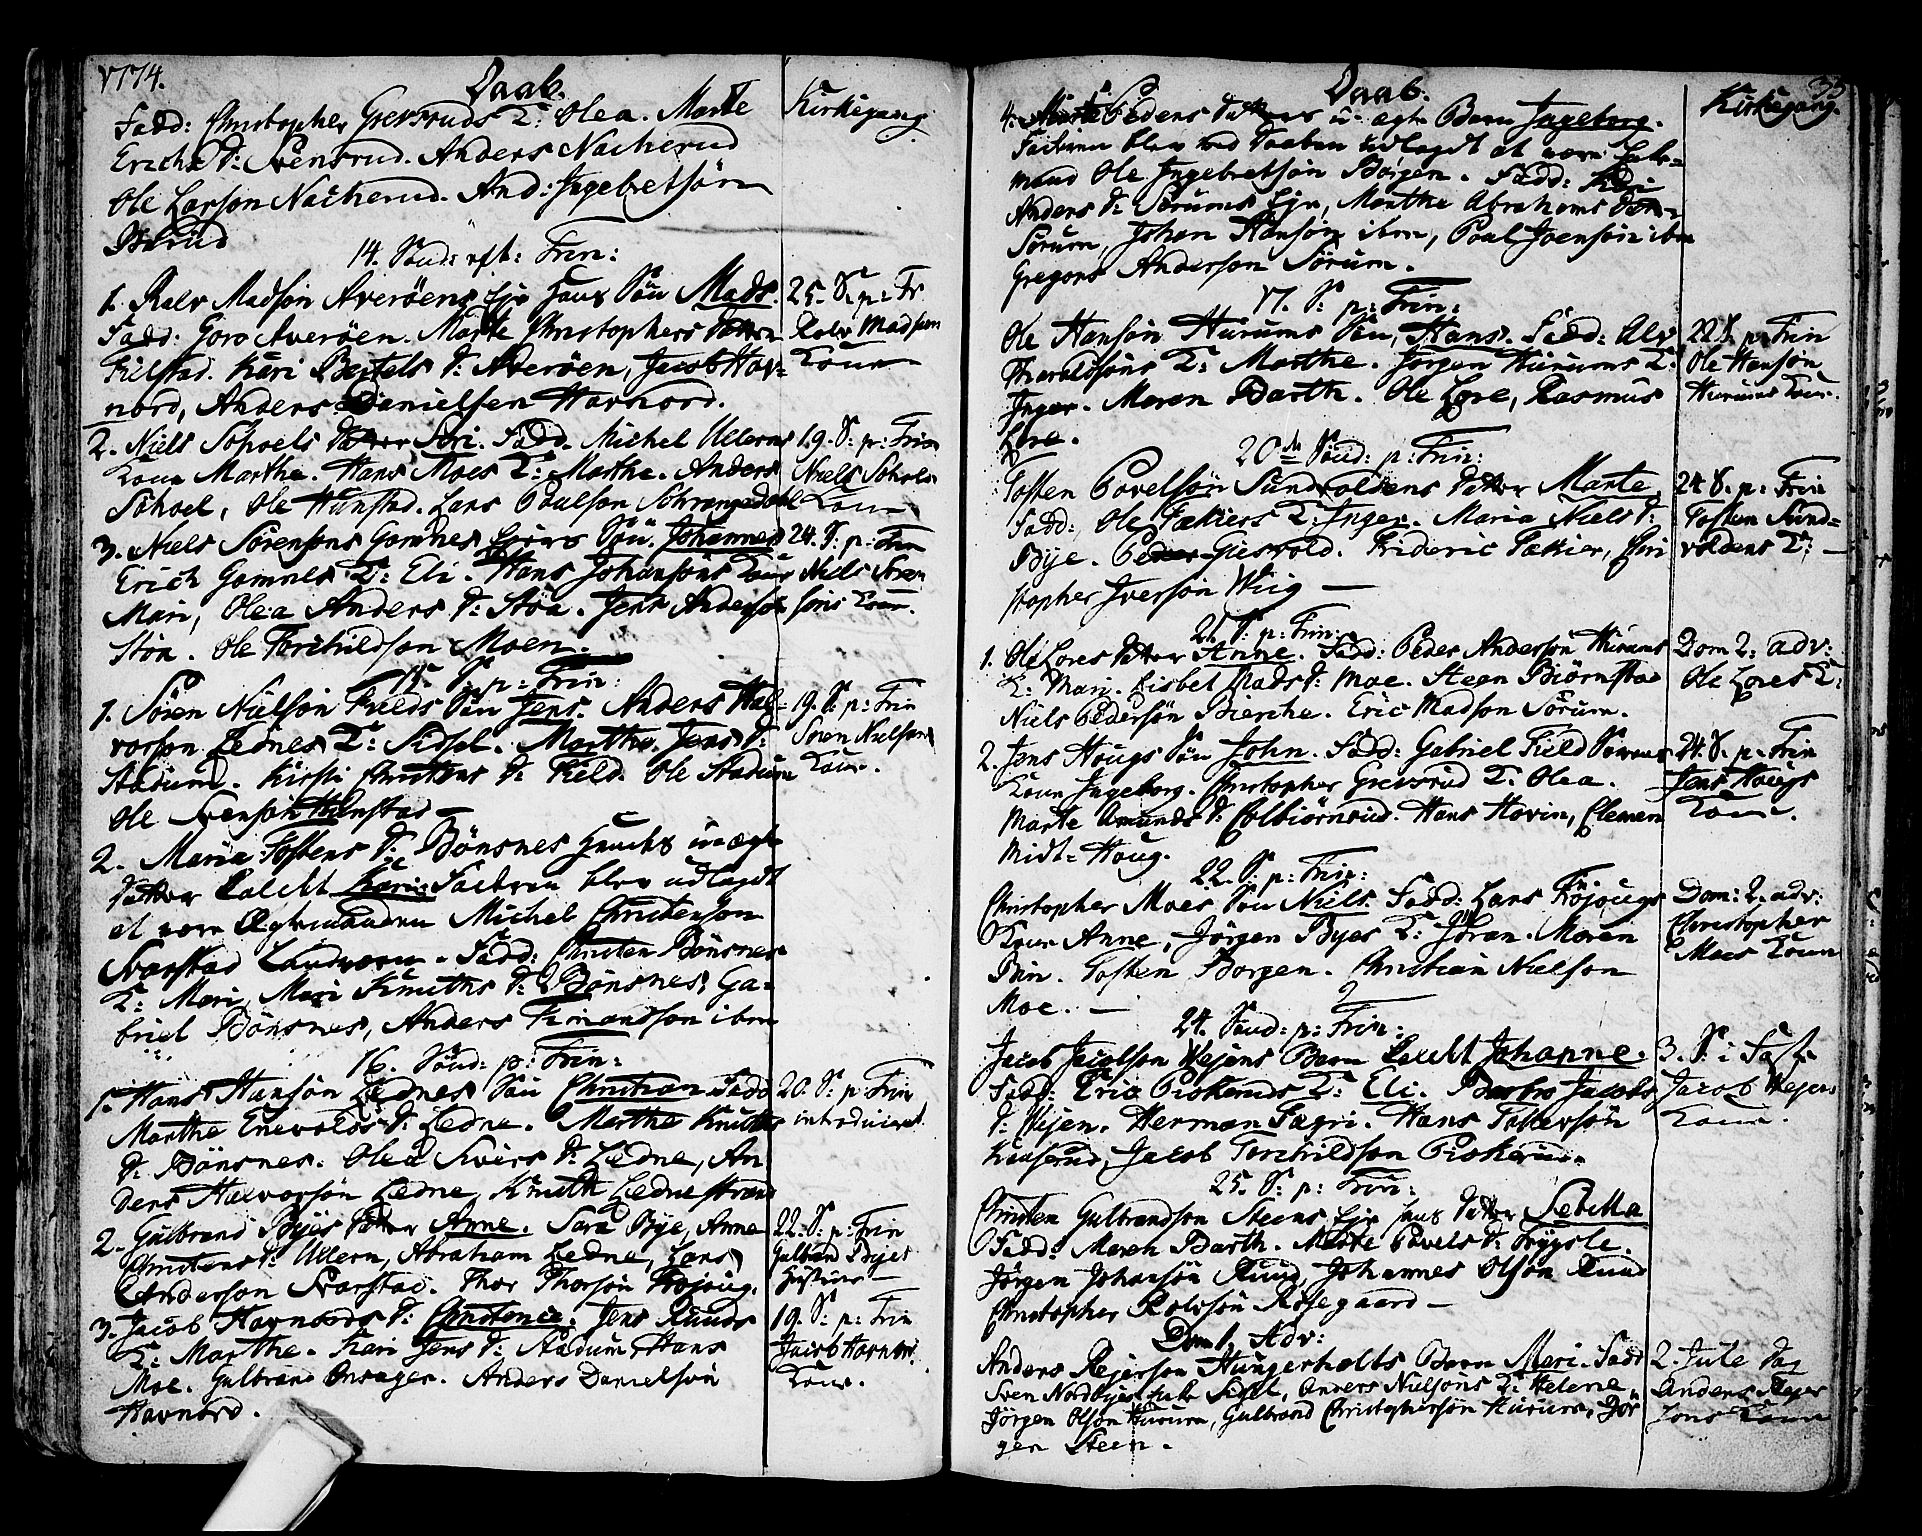 1774.
Daab.
Kirkegang
Fadd: Christopher Grevsruds K: Olea. Marte
Erichs D: Svensrud. Anders Nacherud
Ole Larson Nacherud. And: Ingebretsøn
14. Sønd: eft: Trin:
1. Rolv Madsøn Averøens Søn Mads.
Fadd: Goro Averøen. Marte Christophers Datter
Fielstad. Kari Bertels D: Averøen, Jacob Hav=
nord, Anders Danielsen Havnord.
25. S: p: Tr
Rolv Madsøns
Kone
2. Niels Sohoels Datter Siri. Fadd. Michel Ullerns
Kone Marthe. Hans Moes K: Marthe. Anders
Sohoel, Ole Hunstad. Lars Poulson
19. S: p: Trin
Niels Sohols
Kone
3. Niels Sørensøns Gomnes Søn. Johannes
Erich Gomnes K: Eli. Hans Johansøns Kone
Mari, Olea Anders D: Støa. Jens Anderson
Støa. Ole Torchildson Moen.
24. S: p: Trin
Niels Sørens
søns Kone.
15. S: p: Trin:
1. Søren Nielsøn Fields Søn Jens. Anders Hal=
vorson Lednes K: Sidsel. Marthe Jens D:
Stadum. Kirsti Christens D: Field. Ole Stadum
Ole Svenson Hunstad
19. S: p: Trin
Søren Nielsøns
Kone.
2. Maria Tostens D: Bønsnes uægte
Datter kaldt Kari. Faderen blev udlagt
at være Ægtemanden Michel Christenson
Svarstad Landværn. Fadd: Christen Bønsnes
K: Mari, Mari Knuths D: Bønsnes, Ga=
briel Bønsnes, Anders ibm
16. Sønd: p: Trin:
1. Hans Hansøn Lednes Søn Christian Fadd
Marthe Enevolds D: Ledne. Marthe Knuths
D: Bønsnes. Olea Sivers D: Ledne, An
ders Halvorsøn Ledne, Knuth Lednestrand
20. S: p Trin
introduceret
2. Gulbrand Byes Datter Anne. Sara Bye, Anne
Christens D: Ullern, Abraham Ledne, Lars
Anderson Svarstad. Thor Thorsøn
22. S: p: Trin
Gulbrand Byes
Hustrue
3. Jacob Havnords D: Christence. Jens Ruuds
K: Marthe. Kari Jens D: Stadum, Hans
Moe. Gulbrand Onsager. Anders Danielsøn
Havnord.
19. S: p: Trin
Jacob Havnords
Kone.
Daab.
Kirkegang.
4. Peders Datters u-ægte Barn Ingeborg.
Faderen blev ved Daaben udlagdt at være
mand Ole Ingebretsøn Børgen. Fadd: Kari
Anders D: Sørums Eje, Marthe Abrahams Datter
Sørum, Johan Hansøn ibm, Poul Joensøn ibm
Gregers Anderson Sørum.
17. S: p: Trin:
Ole Hansøn Hurums Søn, Hans. Fadd: Alv
Tharaldsøns K: Marthe. Jørgen Hurums K:
Inger. Maren Barth. Ole Lore, Rasmus
Lore.
22 S. p: Trin
Ole Hansøn
Hurums Kone.
20de Sønd: p: Trin:
Tosten Povelsøn Sundvoldens Datter Marte
Fadd: Ole Fækiers K: Inger. Maria Niels D:
Bye. Peder Giesvold. Frideric Fækier, Chri
stopher Iversøn Wiig
24 S. p: Trin
Tosten Sund=
voldens K:
21. S: p: Trin:
1. Ole Lores Datter Anne. Fadd: Peder Andersøn Hurums
K: Mari. Lisbet Mads D: Moe. Steen Biørnstad
Niels Pedersøn Bierche. Eric Madsøn Sørum.
Dom 2. adv:
Ole Lores K:
2. Jens Hougs Søn John. Fadd: Gabriel Field Sørens
Kone Ingeborg. Christopher Grevsrud K: Olea.
Marte Amunds D: Colbiørnrud. Hans Hovin, Clemen
Midt=Houg.
24. S. p: Trin
Jens Hougs
Kone.
22. S: p: Trin:
Christopher Moes Søn Niels. Fadd: Lars Frøjougs
Kone Anne, Jørgen Byes K: Jøran. Maren
Brin. Tosten Borgen. Christian Nielson
Moe.
Dom: 2. adv:
Christopher
Moes Kone
24. Sønd: p: Trin:
Jacob Jacobson Vejens Barn kaldt Johanne.
Fadd: Eric Piskeruds K: Eli. Barbro Jacobs
D: Vejen. Herman Fagri. Hans
Jacob Torchildson Piskerud.
3. S: i Fast.
Jacob Vejens
Kone.
25. S: p: Trin:
Christen Gulbrandson Steens Eje Datter Sebilla
Fadd: Maren Barth. Marte Povels D: Frøgsle.
Jørgen Johansøn Ruud, Johannes Olsøn Ruud
Christopher Rolvsøn Rosegaard
Dom 1. Adv:
Anders Rejerson Hungerholts Barn Mari. Fadd
Sven Nordbyes Sidsel, Anders Nielsøns K: Helene,
Jørgen Olsøn Hurum, Gulbrand Christophersøn Hurum, Jør
gen Steen.
2. Jule Dag
Anders Rejer
søns Kone